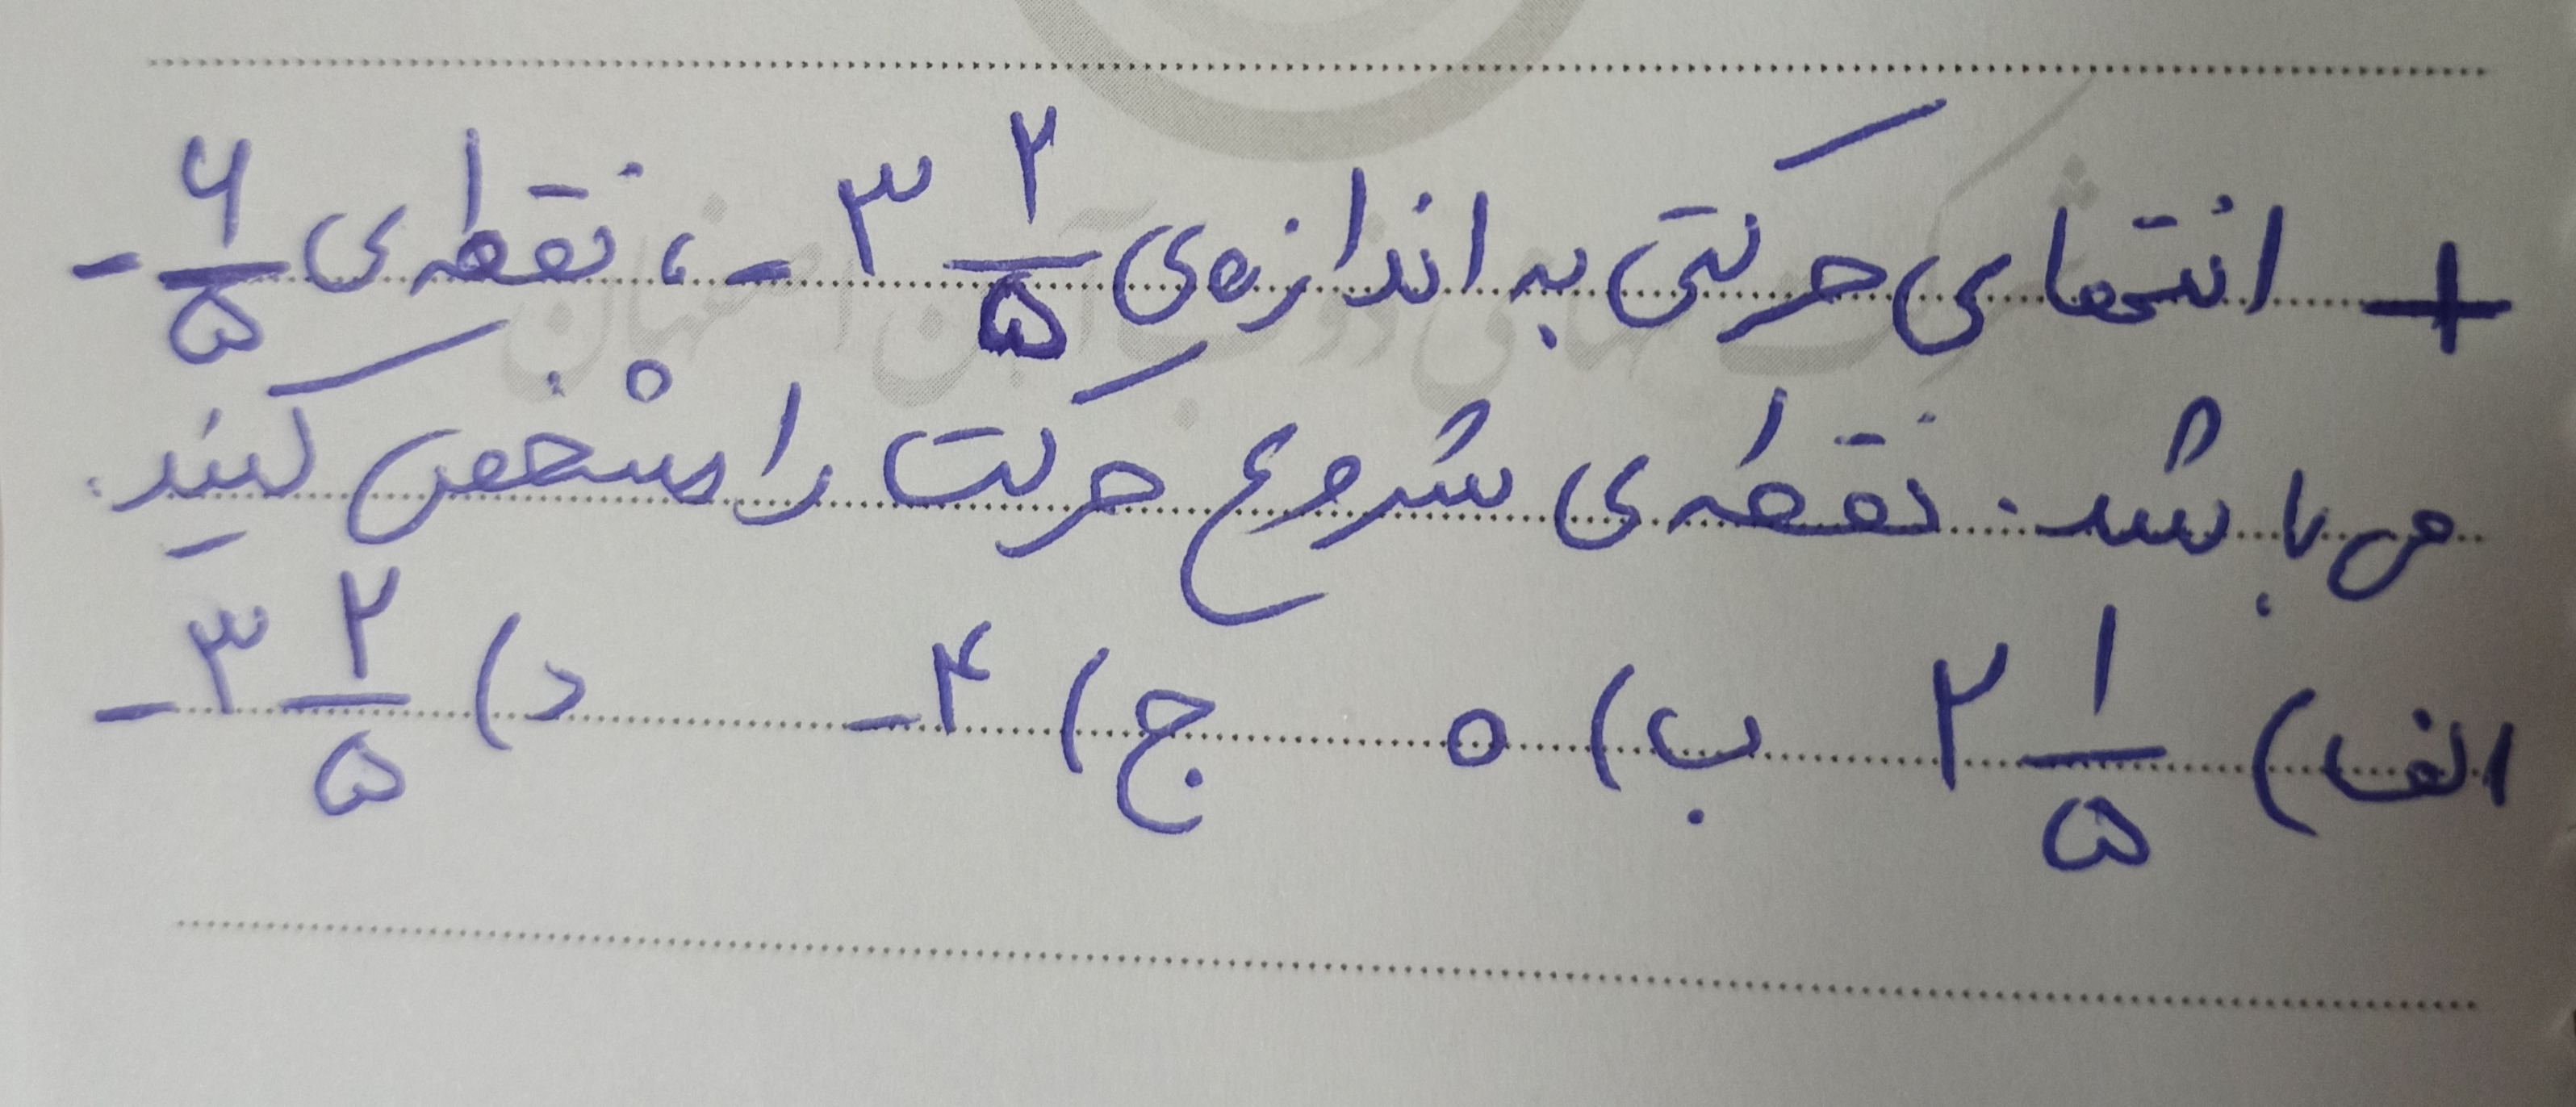 + انتهای حرکتی به اندازه‌ی -۳ ۲/۵ ، نقطه‌ی -۶/۵
می باشد. نقطه‌ی شروع حرکت را مشخص کنید.
الف) ۲ ۱/۵ ب) ۰ ج) -۴ د) -۳ ۲/۵